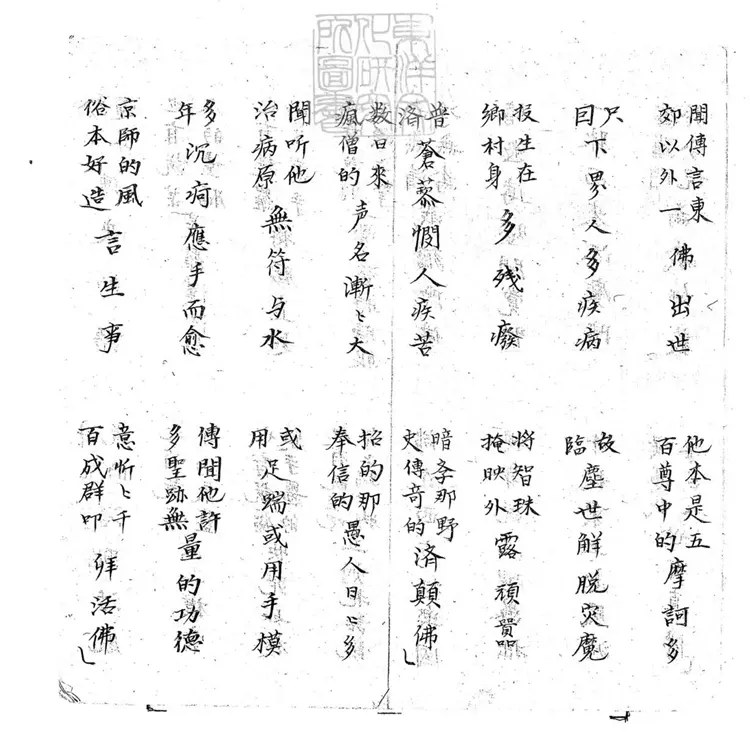 東洋文化研究所圖書
聞傳言東郊以外一佛出世
他本是五百尊中的摩訶多
只曰下界人多疾病
故臨塵世解脫灾魔
投生在鄉村身多殘癈
將智珠掩映外露頑嚚
普濟蒼黎憫人疾苦
暗那野史傳奇的済顛佛
数日來瘋僧的声名漸〻大
招的那奉信的愚人日〻多
聞听他治病原無符与水
或用足踹或用手模
多年沉疴應手而愈
傳聞他許多聖跡無量的功德
京師的風俗本好造言生事
意忻〻千百成群叩拜活佛